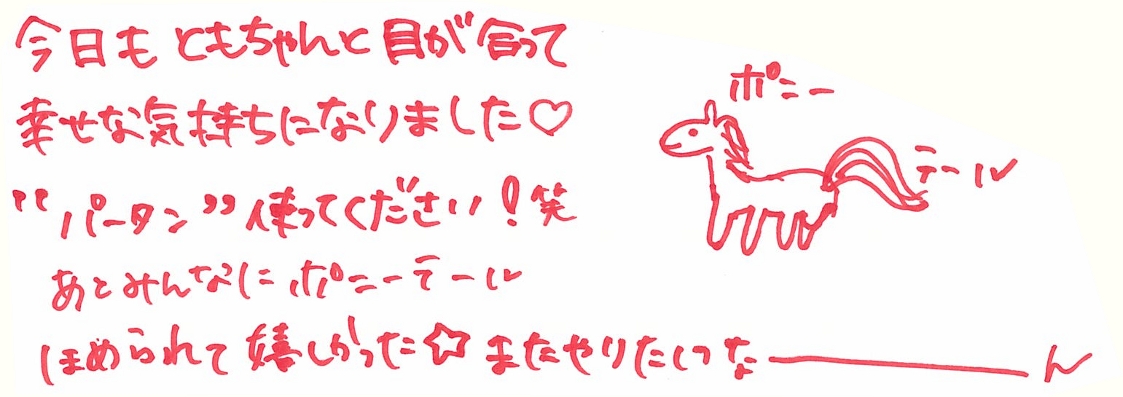 今日も ともちゃんと 目が合って
幸せな気持ちになりました♡
"パータン"使ってください！笑
あとみんなに ポニーテール
ほめられて嬉しかった☆ またやりたいな――――ん
ポニー
テール